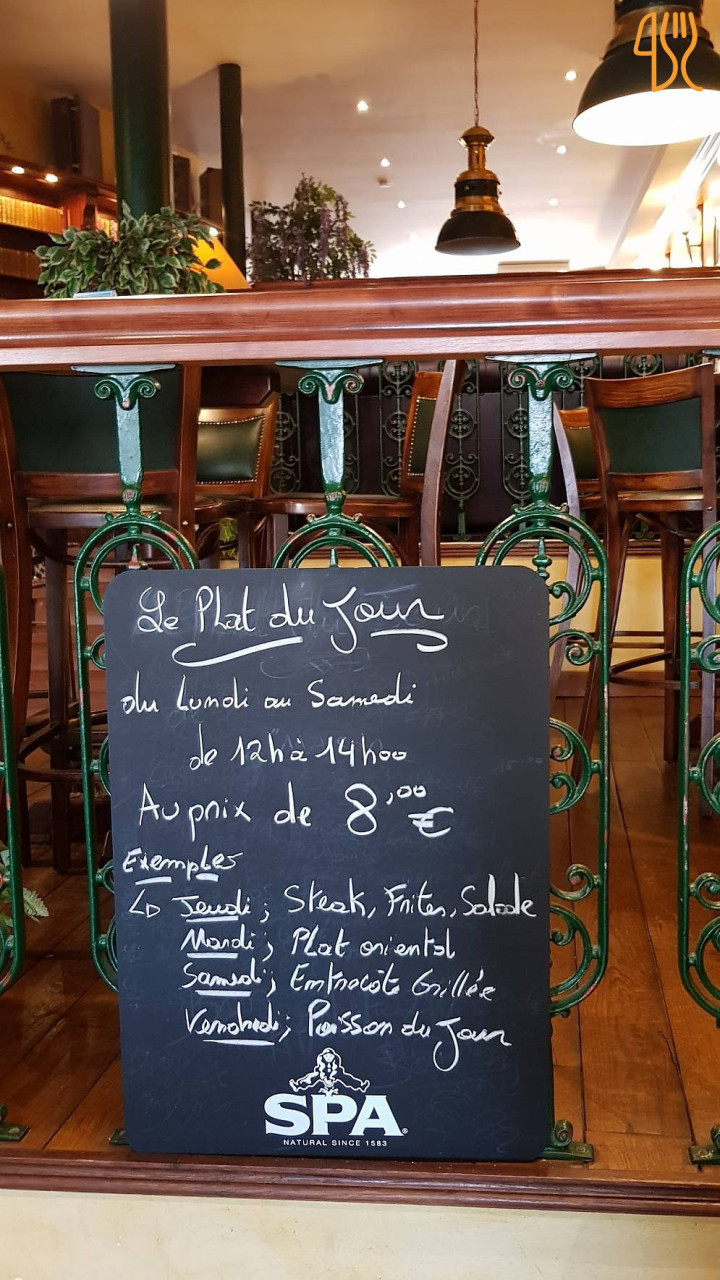 Le Plat du Jour
du Lundi au Samedi
de 12h à 14h00
Au prix de 8,00 €
Exemples
↳ Jeudi ; Steak, Frites, Salade
Mardi ; Plat oriental
Samedi ; Entrecôte Grillée
Vendredi ; Poisson du Jour
SPA®
NATURAL SINCE 1583